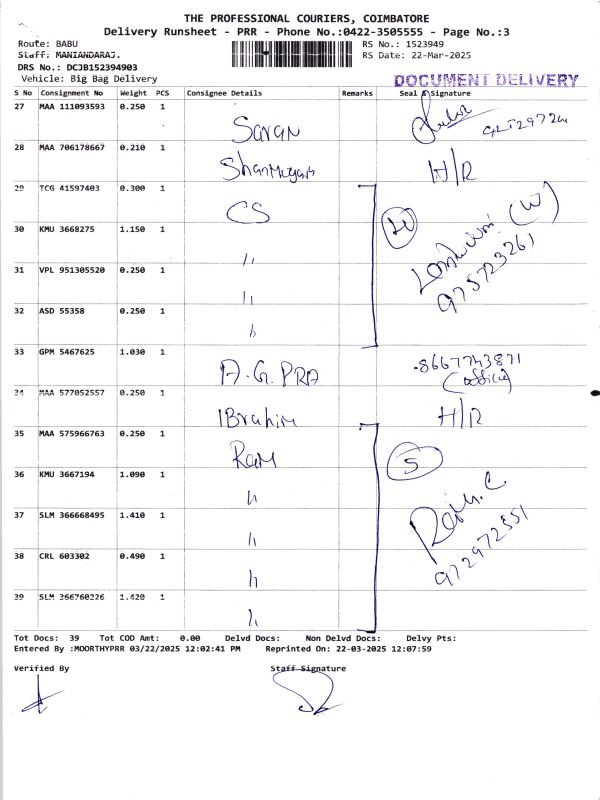 THE PROFESSIONAL COURIERS, COIMBATORE
Delivery Runsheet - PRR - Phone No.:0422-3505555 - Page No.:3
Route: BABU
RS No.: 1523949
Staff: MANIANDARAJ.
RS Date: 22-Mar-2025
DRS No.: DCJB152394903
Vehicle: Big Bag Delivery
DOCUMENT DELIVERY
S No Consignment No Weight PCS Consignee Details Remarks Seal & Signature
27 MAA 111093593 0.250 1 Saran
28 MAA 706178667 0.210 1 Shanmugam H/R
29 TCG 41597403 0.300 1 CS
30 KMU 3668275 1.150 1 "
(W)
31 VPL 951305520 0.250 1 "
975723261
32 ASD 55358 0.250 1 "
33 GPM 5467625 1.030 1 A.G. PRA 8667743871
(office)
34 MAA 577052557 0.250 1 IBrahim H/R
35 MAA 575966763 0.250 1 Ram 5
36 KMU 3667194 1.090 1 "
37 SLM 366668495 1.410 1 "
38 CRL 603302 0.490 1 "
972972551
39 SLM 366760226 1.420 1 "
Tot Docs: 39 Tot COD Amt: 0.00 Delvd Docs: Non Delvd Docs: Delvy Pts:
Entered By :MOORTHYPRR 03/22/2025 12:02:41 PM Reprinted On: 22-03-2025 12:07:59
Verified By Staff Signature